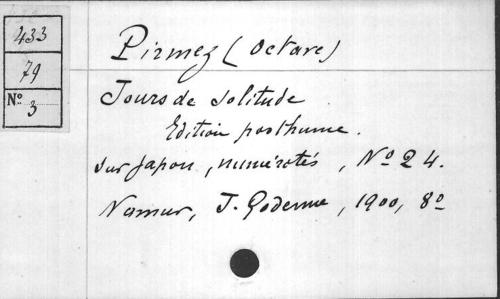 433
79
No 3
Pirmez (Octave)
Jours de solitude
Edition posthume.
sur Japon, numérotés, No 24.
Namur, J. Godenne, 1900, 8o